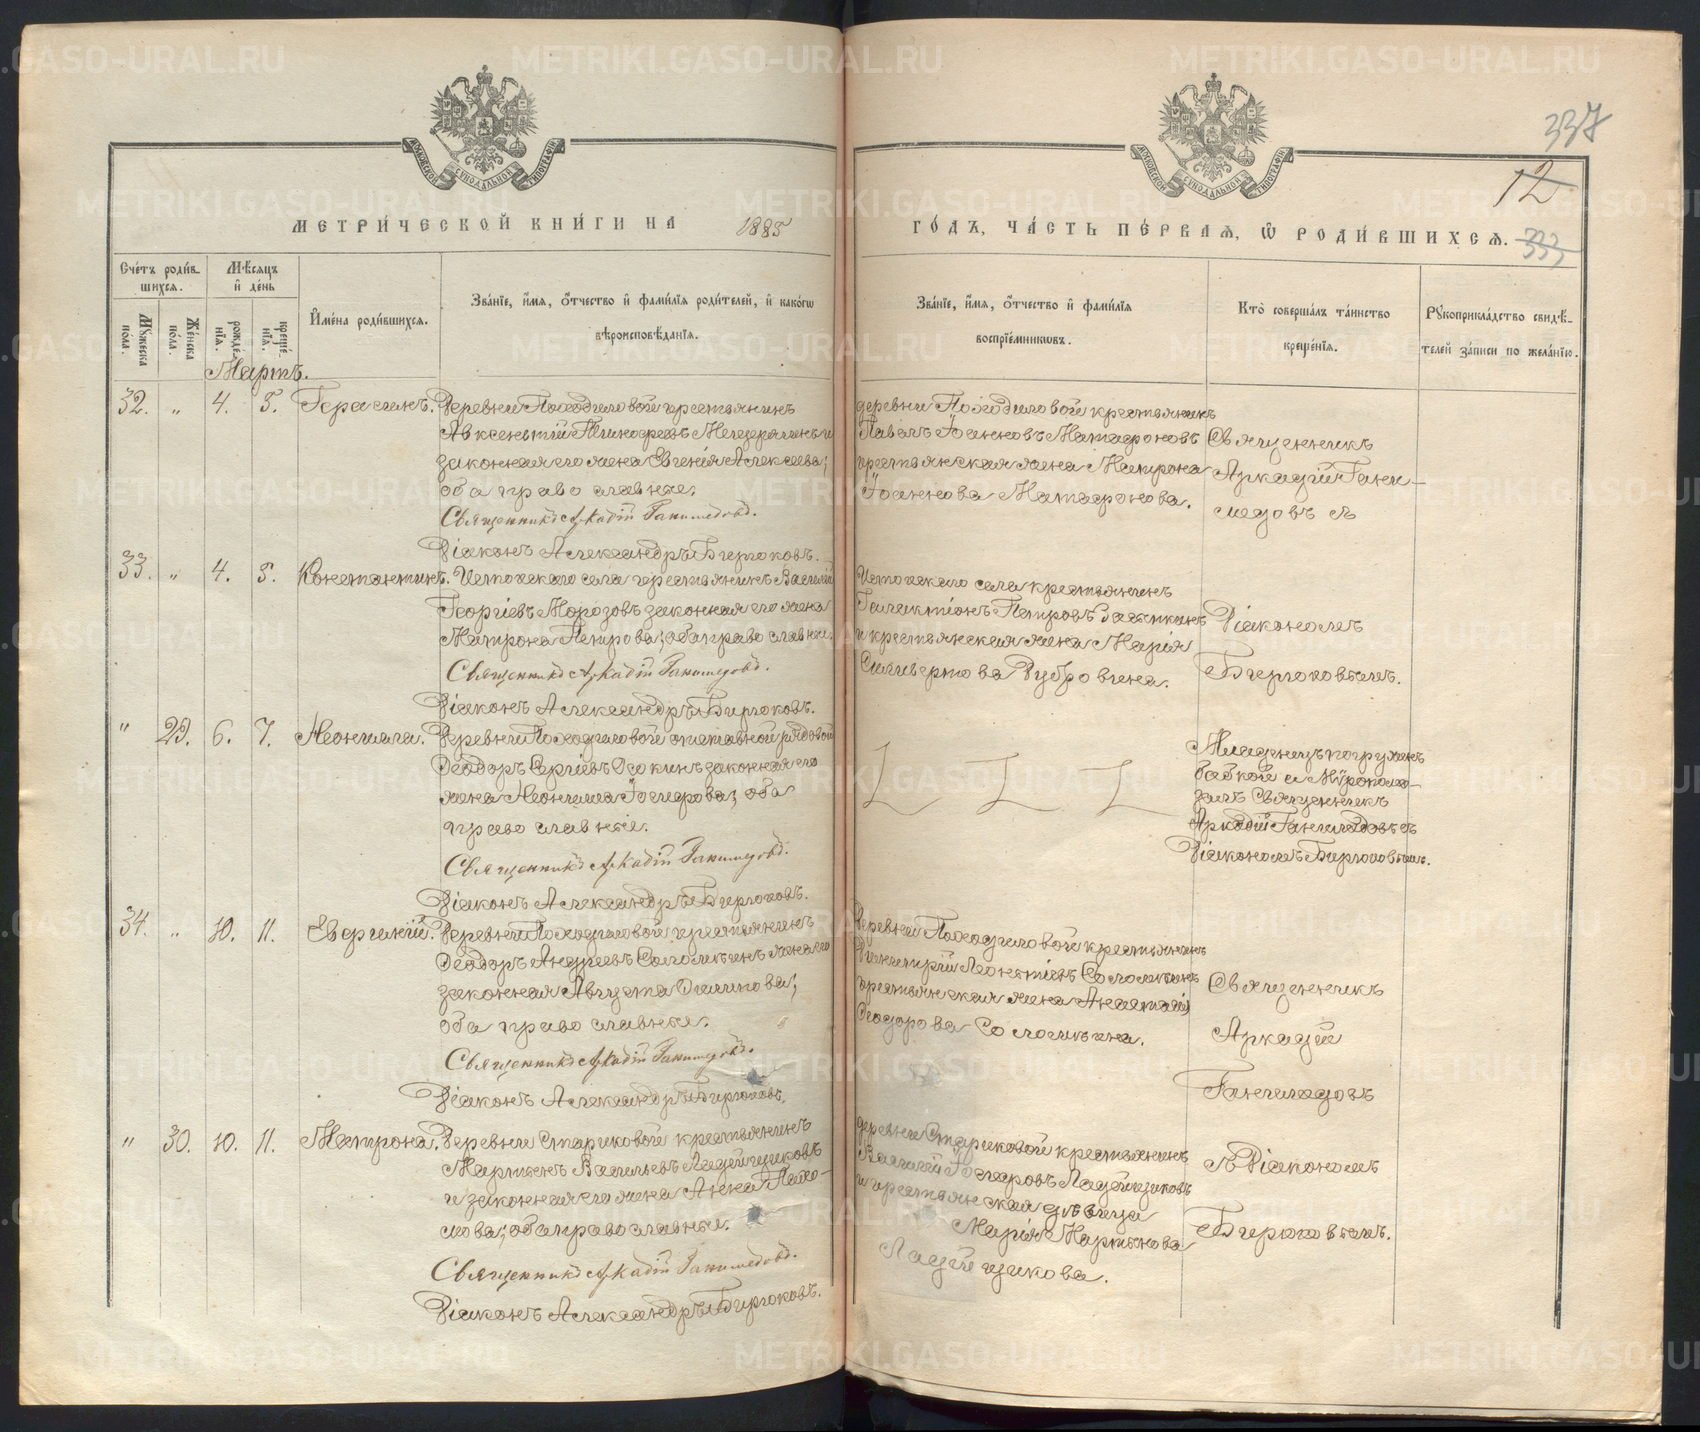 METRIKI.GASO-URAL.RU
337
12
МОСКОВСКОЙ СѴНОДАЛЬНОЙ ТИПОГРАФІИ
МОСКОВСКОЙ СѴНОДАЛЬНОЙ ТИПОГРАФІИ
МЕТРИ́ЧЕСКОЙ КНИ́ГИ НА 1885
ГО́ДЪ, ЧА́СТЬ ПЕ́РВАЯ, Ѿ РОДИ́ВШИХСЯ. 333
Сче́тъ роди́в-
шихся.
Мѣ́сяцъ
и҆ де́нь
Мꙋ́жеска по́ла.
Же́нска по́ла.
рожде́нїя.
креще́нїя.
И҆мена̀ роди́вшихся.
Зва́нїе, и҆́мя, ѻ҆́тчество и҆ фами́лїя роди́телей, и҆ како́гѡ
вѣроисповѣ́данїя.
Зва́нїе, и҆́мя, ѻ҆́тчество и҆ фами́лїя
воспрїе́мникѡвъ.
Кто̀ соверша́лъ та́инство
креще́нїя.
Рꙋкоприкла́дство свидѣ́-
телей за́писи по жела́нїю.
Мартъ.
32. „ 4. 5. Герасимъ. Деревни Походиловой крестьянинъ
Авксентій Никифоровъ Мещеряковъ и
законная его жена Евгенія Алексеева;
оба православные.
Священникъ Аркадій Ганимедовъ.
Діаконъ Александръ Бирюковъ.
деревни Походиловой крестьянинъ
Павелъ Іоанновъ Матафоновъ
крестьянская жена Матрона
Іоаннова Матафонова.
Священникъ
Аркадій Гани-
медовъ съ
33. „ 4. 5. Константинъ. Истокскаго села крестьянинъ Василій
Георгіевъ Морозовъ законная его жена
Матрона Петрова; оба православные.
Священникъ Аркадій Ганимедовъ.
Діаконъ Александръ Бирюковъ.
Истокскаго села крестьянинъ
Галактіонъ Петровъ
и крестьянская жена Марія
Силивертова Дубровина.
Діакономъ
Бирюковымъ.
„ 29. 6. 7. Неонила. Деревни Походиловой отставной рядовой
Ѳеодоръ Сергіевъ Осокинъ законная его
жена Неонила Іосифова; оба
православные.
Священникъ Аркадій Ганимедовъ.
Діаконъ Александръ Бирюковъ.
Младенецъ погруженъ
бабкой и Мѵропома-
залъ Священникъ
Аркадій Ганимедовъ съ
Діакономъ Бирюковымъ.
34. „ 10. 11. Евергилій. Деревни Походиловой крестьянинъ
Ѳеодоръ Андреевъ Соломеинъ жена его
законная Августа Осиповa;
оба православные.
Священникъ Аркадій Ганимедовъ.
Діаконъ Александръ Бирюковъ.
Деревни Походиловой крестьянинъ
Димитрій Леонтіевъ Соломеинъ
крестьянская жена Анастасія
Ѳеодорова Соломеина.
Священникъ
Аркадій
Ганимедовъ
„ 30. 10. 11. Матрона. Деревни Стариковой крестьянинъ
Мартинъ Васильевъ Ладейщиковъ
и законная его жена Анна Пахо-
мова; оба православные.
Священникъ Аркадій Ганимедовъ.
Діаконъ Александръ Бирюковъ.
деревни Стариковой крестьянинъ
Василій Ладейщиковъ
и крестьянская дѣвица
Марія Мартинова
Ладейщикова.
съ Діакономъ
Бирюковымъ.